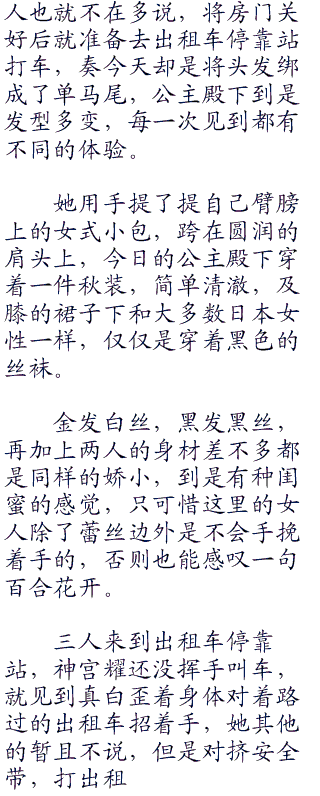 人也就不在多说，将房门关
好后就准备去出租车停靠站
打车，奏今天却是将头发绑
成了单马尾，公主殿下到是
发型多变，每一次见到都有
不同的体验。
她用手提了提自己臂膀
上的女式小包，跨在圆润的
肩头上，今日的公主殿下穿
着一件秋装，简单清澈，及
膝的裙子下和大多数日本女
性一样，仅仅是穿着黑色的
丝袜。
金发白丝，黑发黑丝，
再加上两人的身材差不多都
是同样的娇小，到是有种闺
蜜的感觉，只可惜这里的女
人除了蕾丝边外是不会手挽
着手的，否则也能感叹一句
百合花开。
三人来到出租车停靠
站，神宫耀还没挥手叫车，
就见到真白歪着身体对着路
过的出租车招着手，她其他
的暂且不说，但是对挤安全
带，打出租